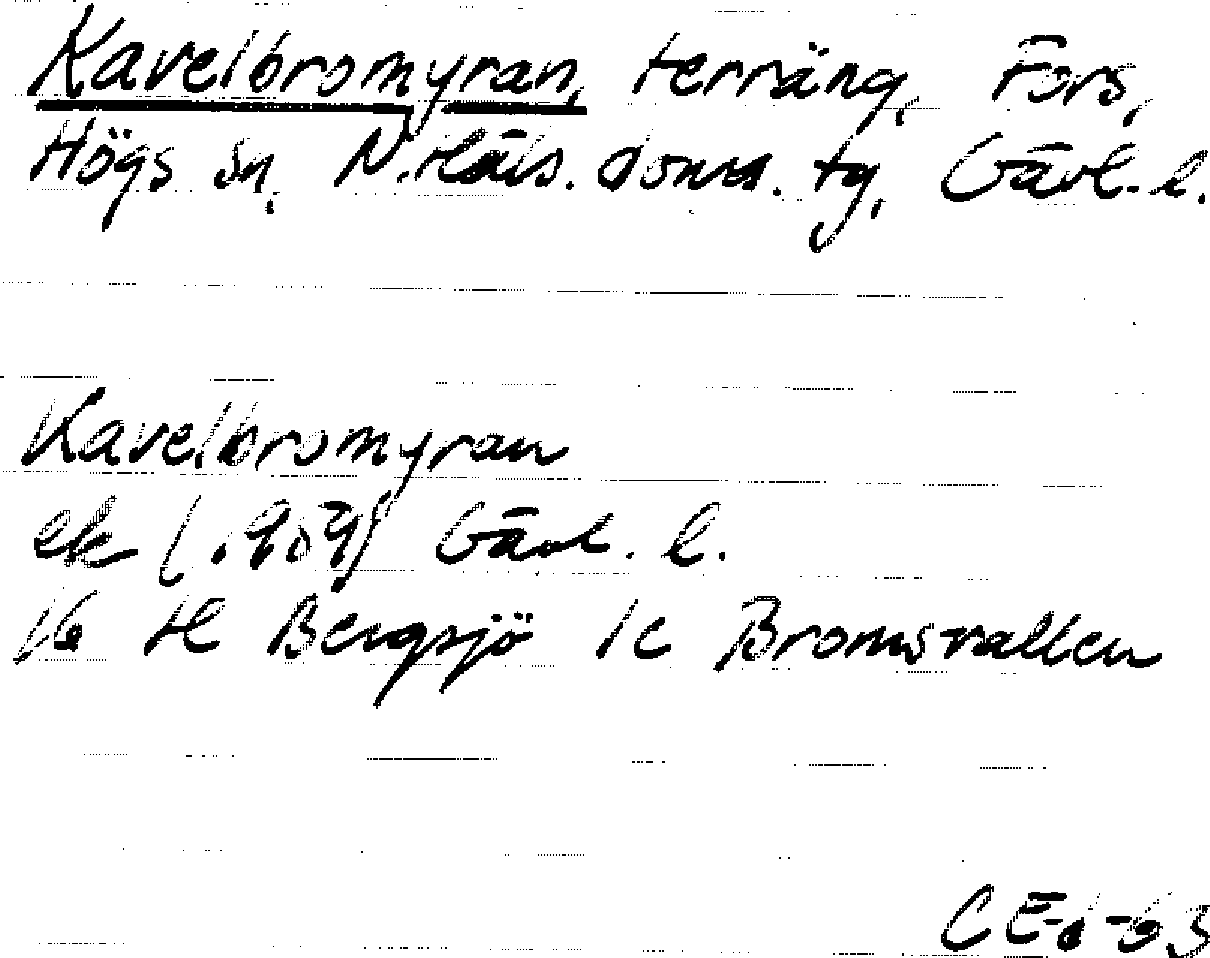 Kavelbromyran, terräng, Fors,
Högs sn, N. Häls. doms. tg, Gävl. l.
Kavelbromyran
ek (1959) Gävl. l.
16 H Bergsjö 1c Bromsvallen
CE-6-63